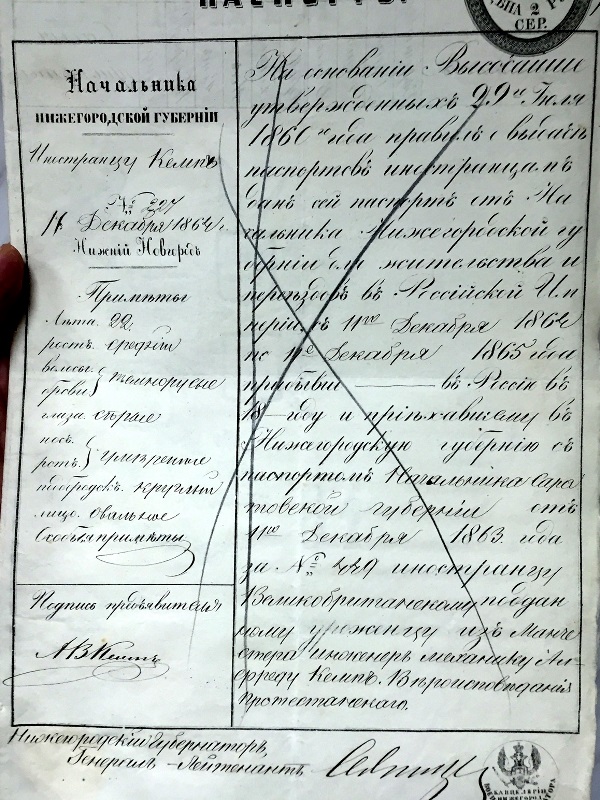 ПАСПОРТЪ
ЦѢНА 2 Р.
СЕР.
Начальника
НИЖЕГОРОДСКОЙ ГУБЕРНІИ
Иностранцу Кемпъ
11 Декабря 1864 г.
Нижній Новгородъ
Примѣты
Лѣта. 22,
ростъ. средній
волосы.
брови
темнорусые
глаза. сѣрые
носъ.
ротъ.
умѣренные
подбородокъ. круглый
лицо. овальное
Особыя примѣты
Подпись предъявителя
А В Кемпъ
На основаніи Высочайше
утвержденныхъ 29 Іюля
1860 года правилъ о выдачѣ
паспортовъ иностранцамъ
данъ сей паспортъ отъ На
чальника Нижегородской гу
берніи для жительства и
переѣздовъ въ Россійской Им
періи, съ 11го Декабря 1864
по 11е Декабря 1865 года
прибывши въ Россію въ
18 году и пріѣхавшему въ
Нижегородскую губернію съ
паспортомъ Начальника Сара
товской губерніи отъ
11го Декабря 1863 года
за № 449 иностранцу
Великобританскому поддан
ному уроженцу изъ Манче
стера инженеръ механику Аль
фреду Кемпъ. Вѣроисповѣданія
протестанскаго.
Нижегородскій Губернаторъ,
Генералъ-Лейтенантъ